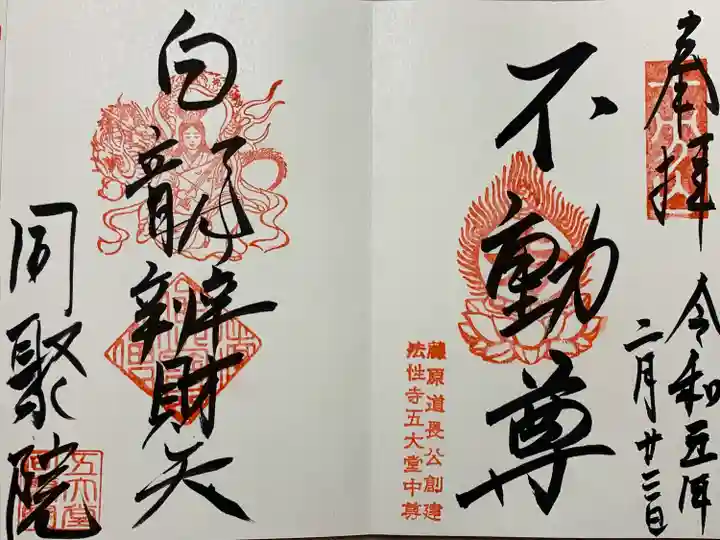 奉拝
令和五年
二月廿三日
不動尊
藤原道長公創建
法性寺五大堂中尊
白龍辨財天
同聚院
五大堂